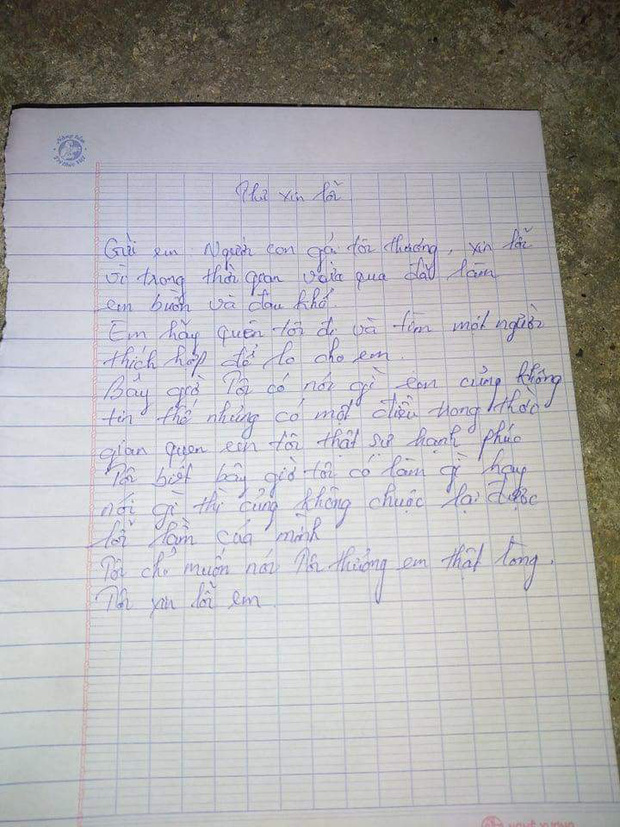 Thư xin lỗi
Gửi em. Người con gái tôi thương, xin lỗi
vì trong thời gian vừa qua đã làm
em buồn và đau khổ.
Em hãy quên tôi đi và tìm một người
thích hợp để lo cho em.
Bây giờ Tôi có nói gì em củng không
tin thế nhưng có một điều trong thời
gian quen em tôi thật sự hạnh phúc
Tôi biết bây giờ tôi có làm gì hay
nói gì thì củng không chuộc lại được
lỗi lầm của mình
Tôi chỉ muốn nói Tôi thương em thật lòng.
Tôi xin lỗi em.